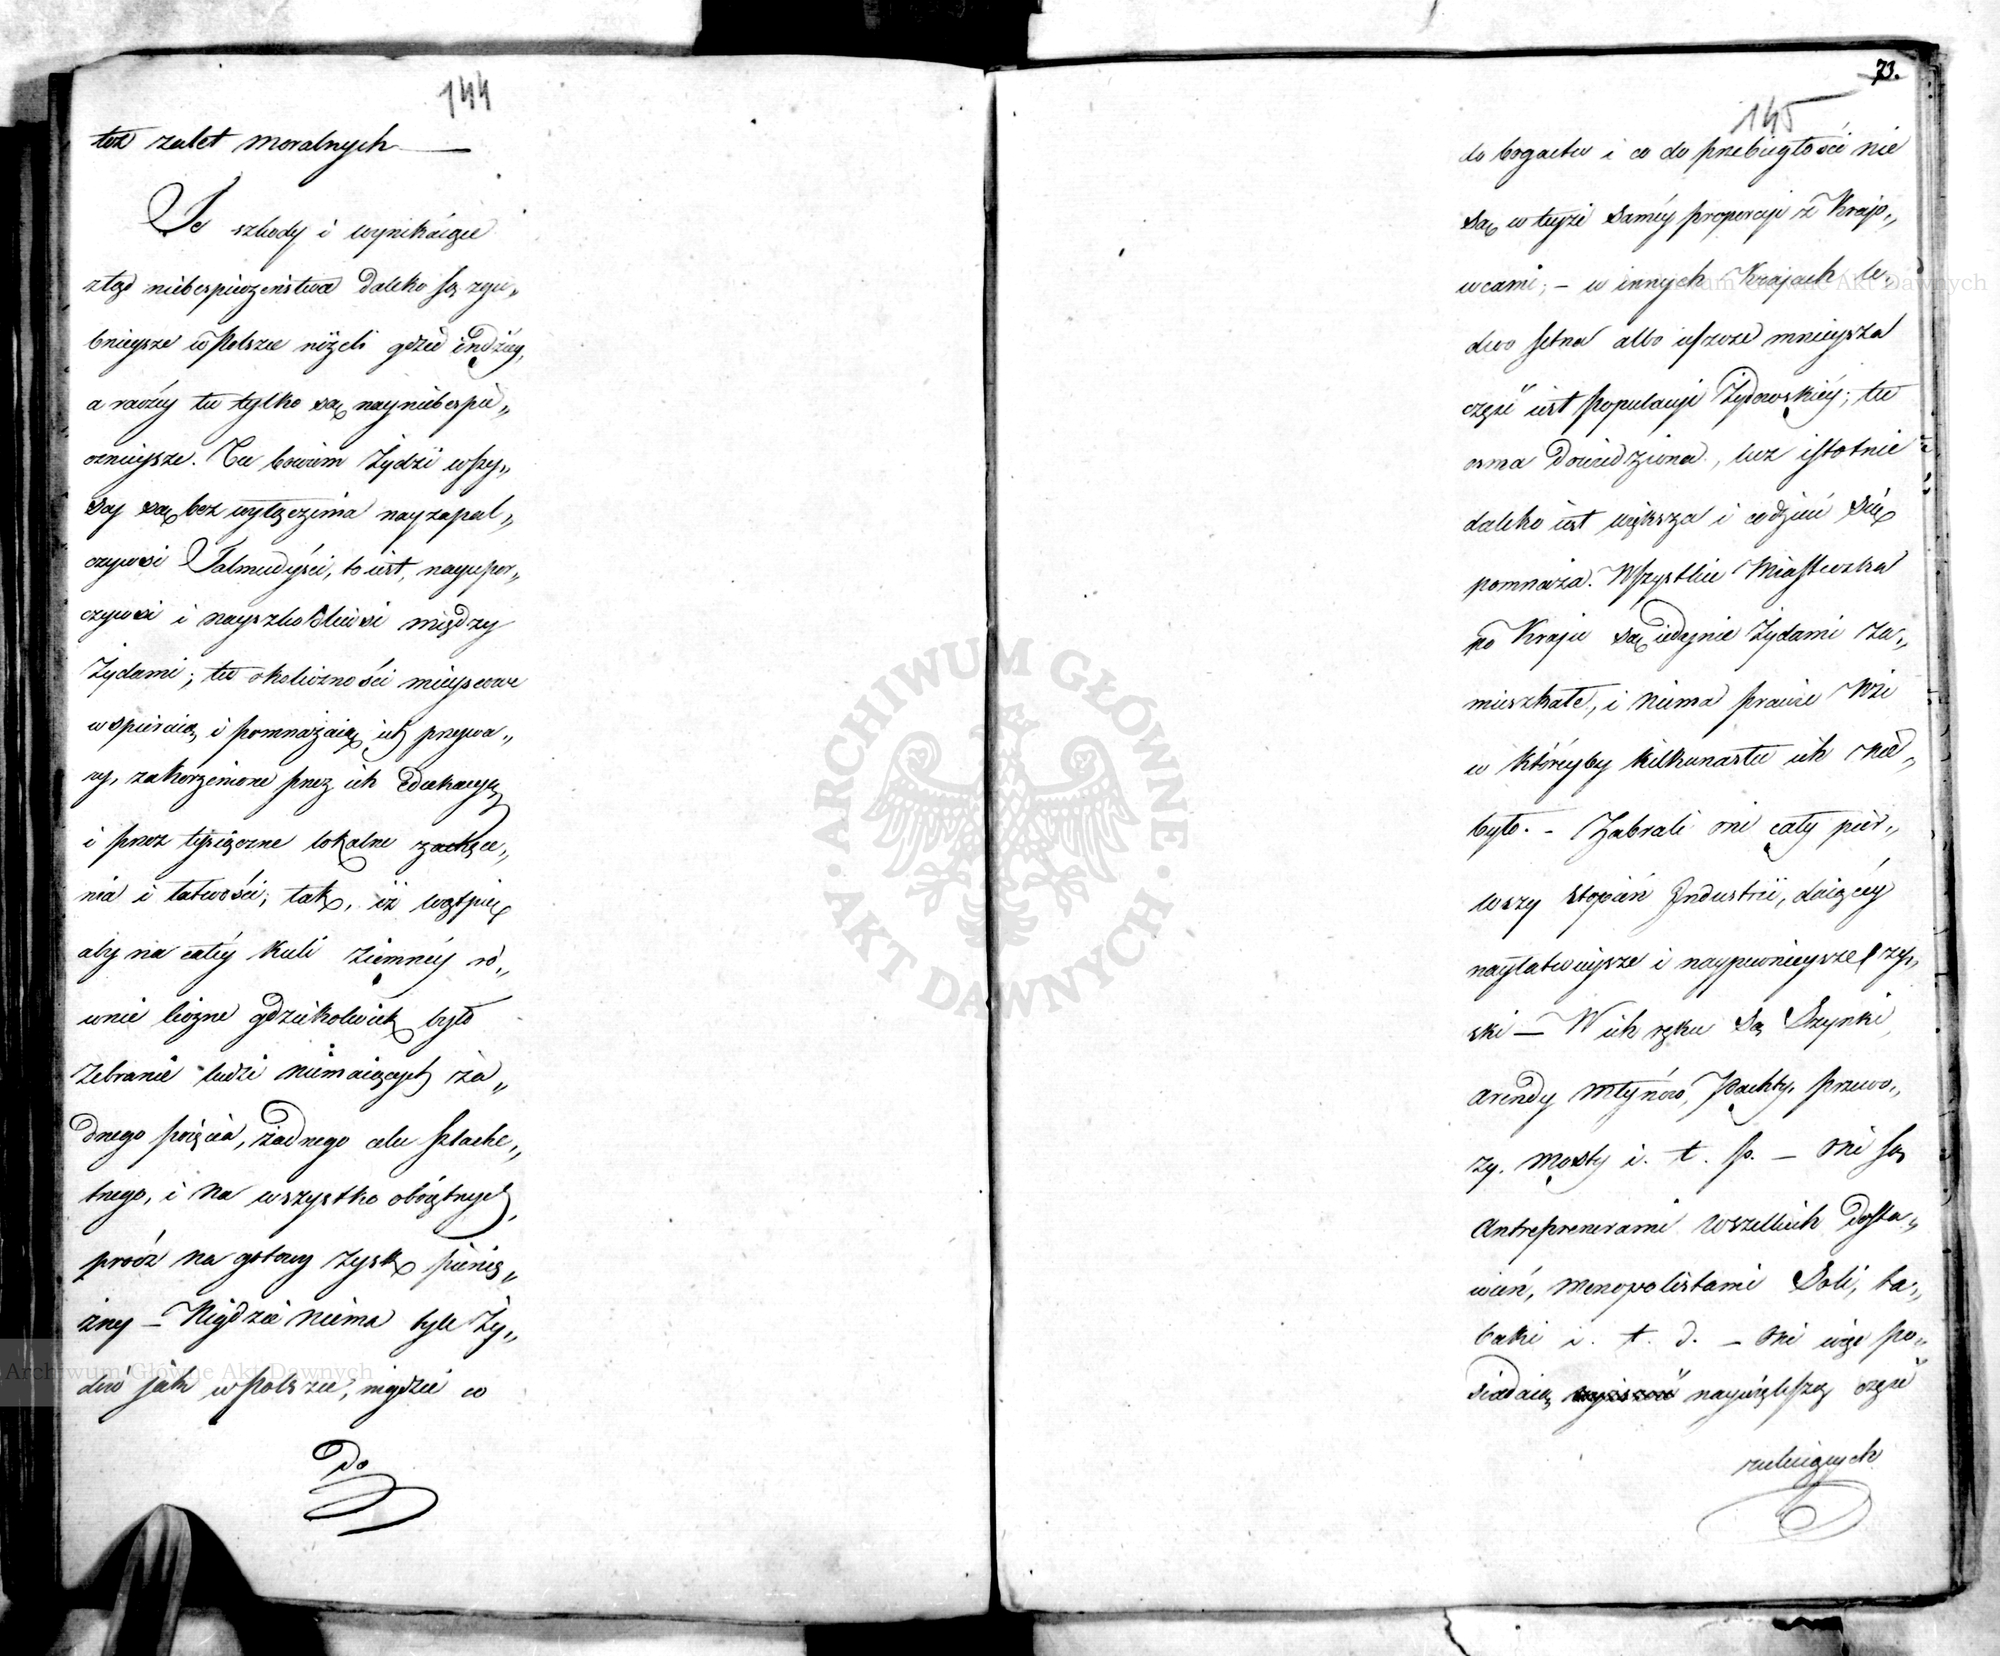 144
też zalet moralnych —
Te szkody i wynikaiące
ztąd niebespieczeństwa daleko są zgu„
bnieysze w Polszcze niżeli gdzie indziey,
a raczéy tu tylko są nayniebespie„
cznieysze. Tu bowiem Żydzi wszy„
scy są bez wyłączenia nayzapal„
czywsi Talmudyści, to iest, nayupor„
czywsi i nayszkodliwsi między
Żydami; tu okoliczności mieyscowe
wspieraią i pomnażaią ich przywa„
ry, zakorzenione przez ich Edukacyą,
i przez tysiączne lokalne zachęce„
nia i łatwości; tak, iż wątpię
aby na całéy kuli ziemnéy ró„
wnie liczne gdziekolwiek było
zebranie ludzi niemaiących ża„
dnego poięcia, żadnego celu szlache„
tnego, i na wszystko oboiętnych,
prócz na gotowy zysk pienię„
żny — Nigdzie niema tyle Ży„
dów jak w Polszcze, nigdzie co
do
73.
145
do bogactw i co do przebiegłości nie
są w teyże saméy proporcyi z Krajo„
wcami; — w innych Krajach le„
dwo setna albo ieszcze mnieysza
część iest populacyi Żydowskiéy; tu
osma dowiedziona, lecz istotnie
daleko iest większa i codzień się
pomnaża. Wszystkie Miasteczka
po Kraju są iedynie Żydami za„
mieszkałe, i niema prawie Wsi
w któréyby kilkunastu ich nie„
było. — Zabrali oni cały pier„
wszy stopień Industrii, daiącéy
nayłatwieysze i naypewnieysze zy„
ski — W ich ręku są Szynki
arendy Młynów, Pachty, przewo„
zy, mosty i. t. p. — Oni są
Antreprenerami wszelkich dosta„
wień, Monopolistami Soli, ta„
baki i. t. d. — Oni więc po„
siadaią naywiększą część
rulnących
Archiwum Główne Akt Dawnych
ARCHIWUM GŁÓWNE · AKT DAWNYCH ·
Archiwum Główne Akt Dawnych